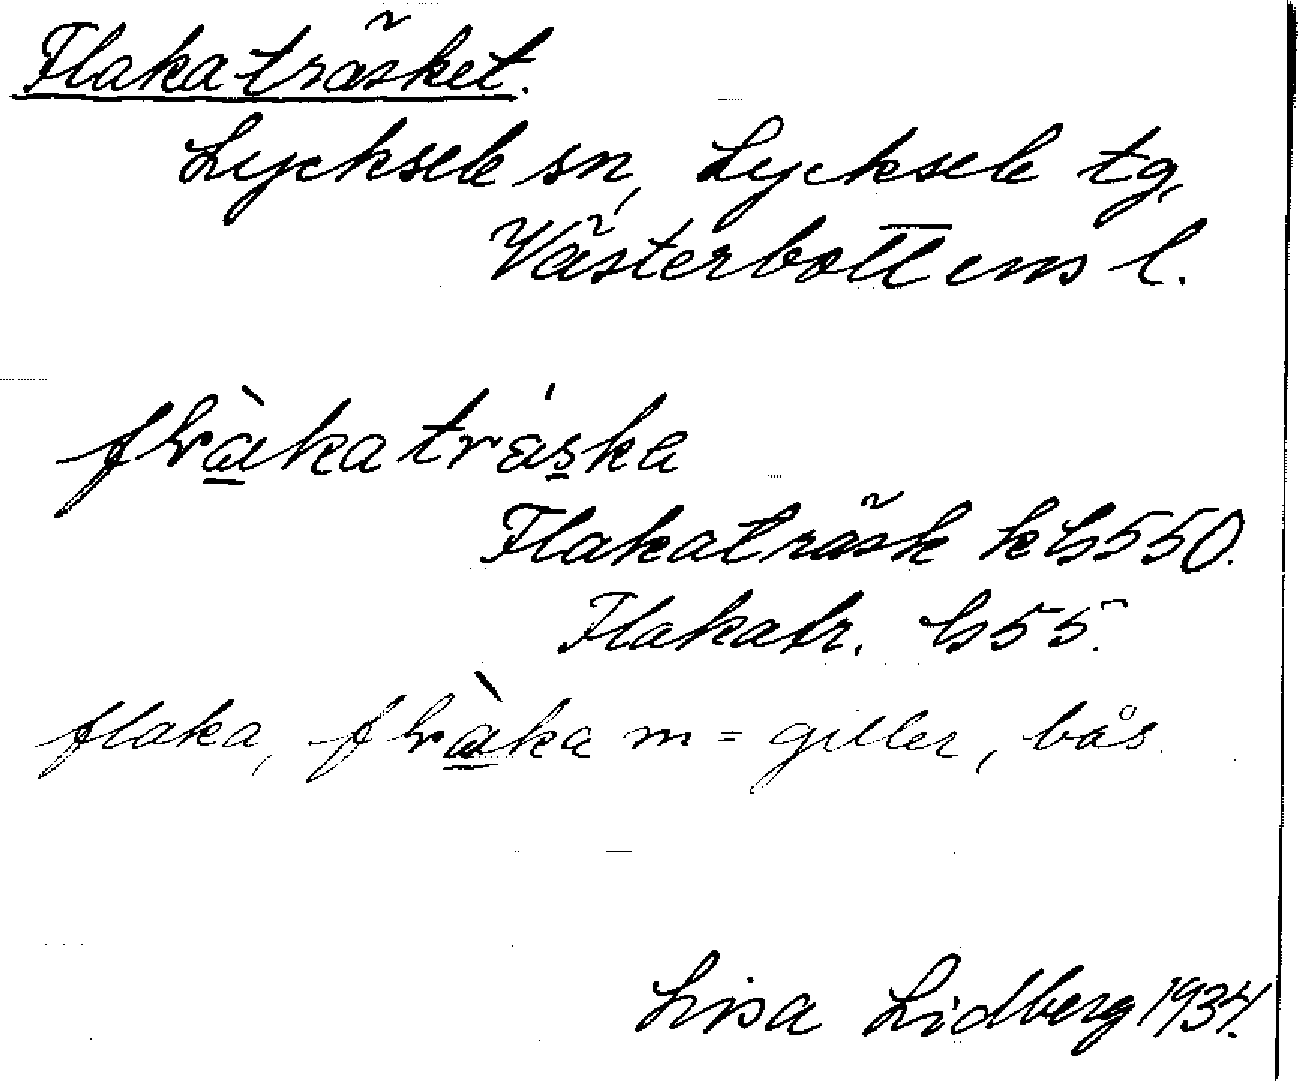 Flakaträsket.
Lycksele sn, Lycksele tg,
Västerbottens l.
Flakaträsk kb 550.
Flakatr. b 55.
flaka, m = giller, bås.
Lisa Lidberg 1934.